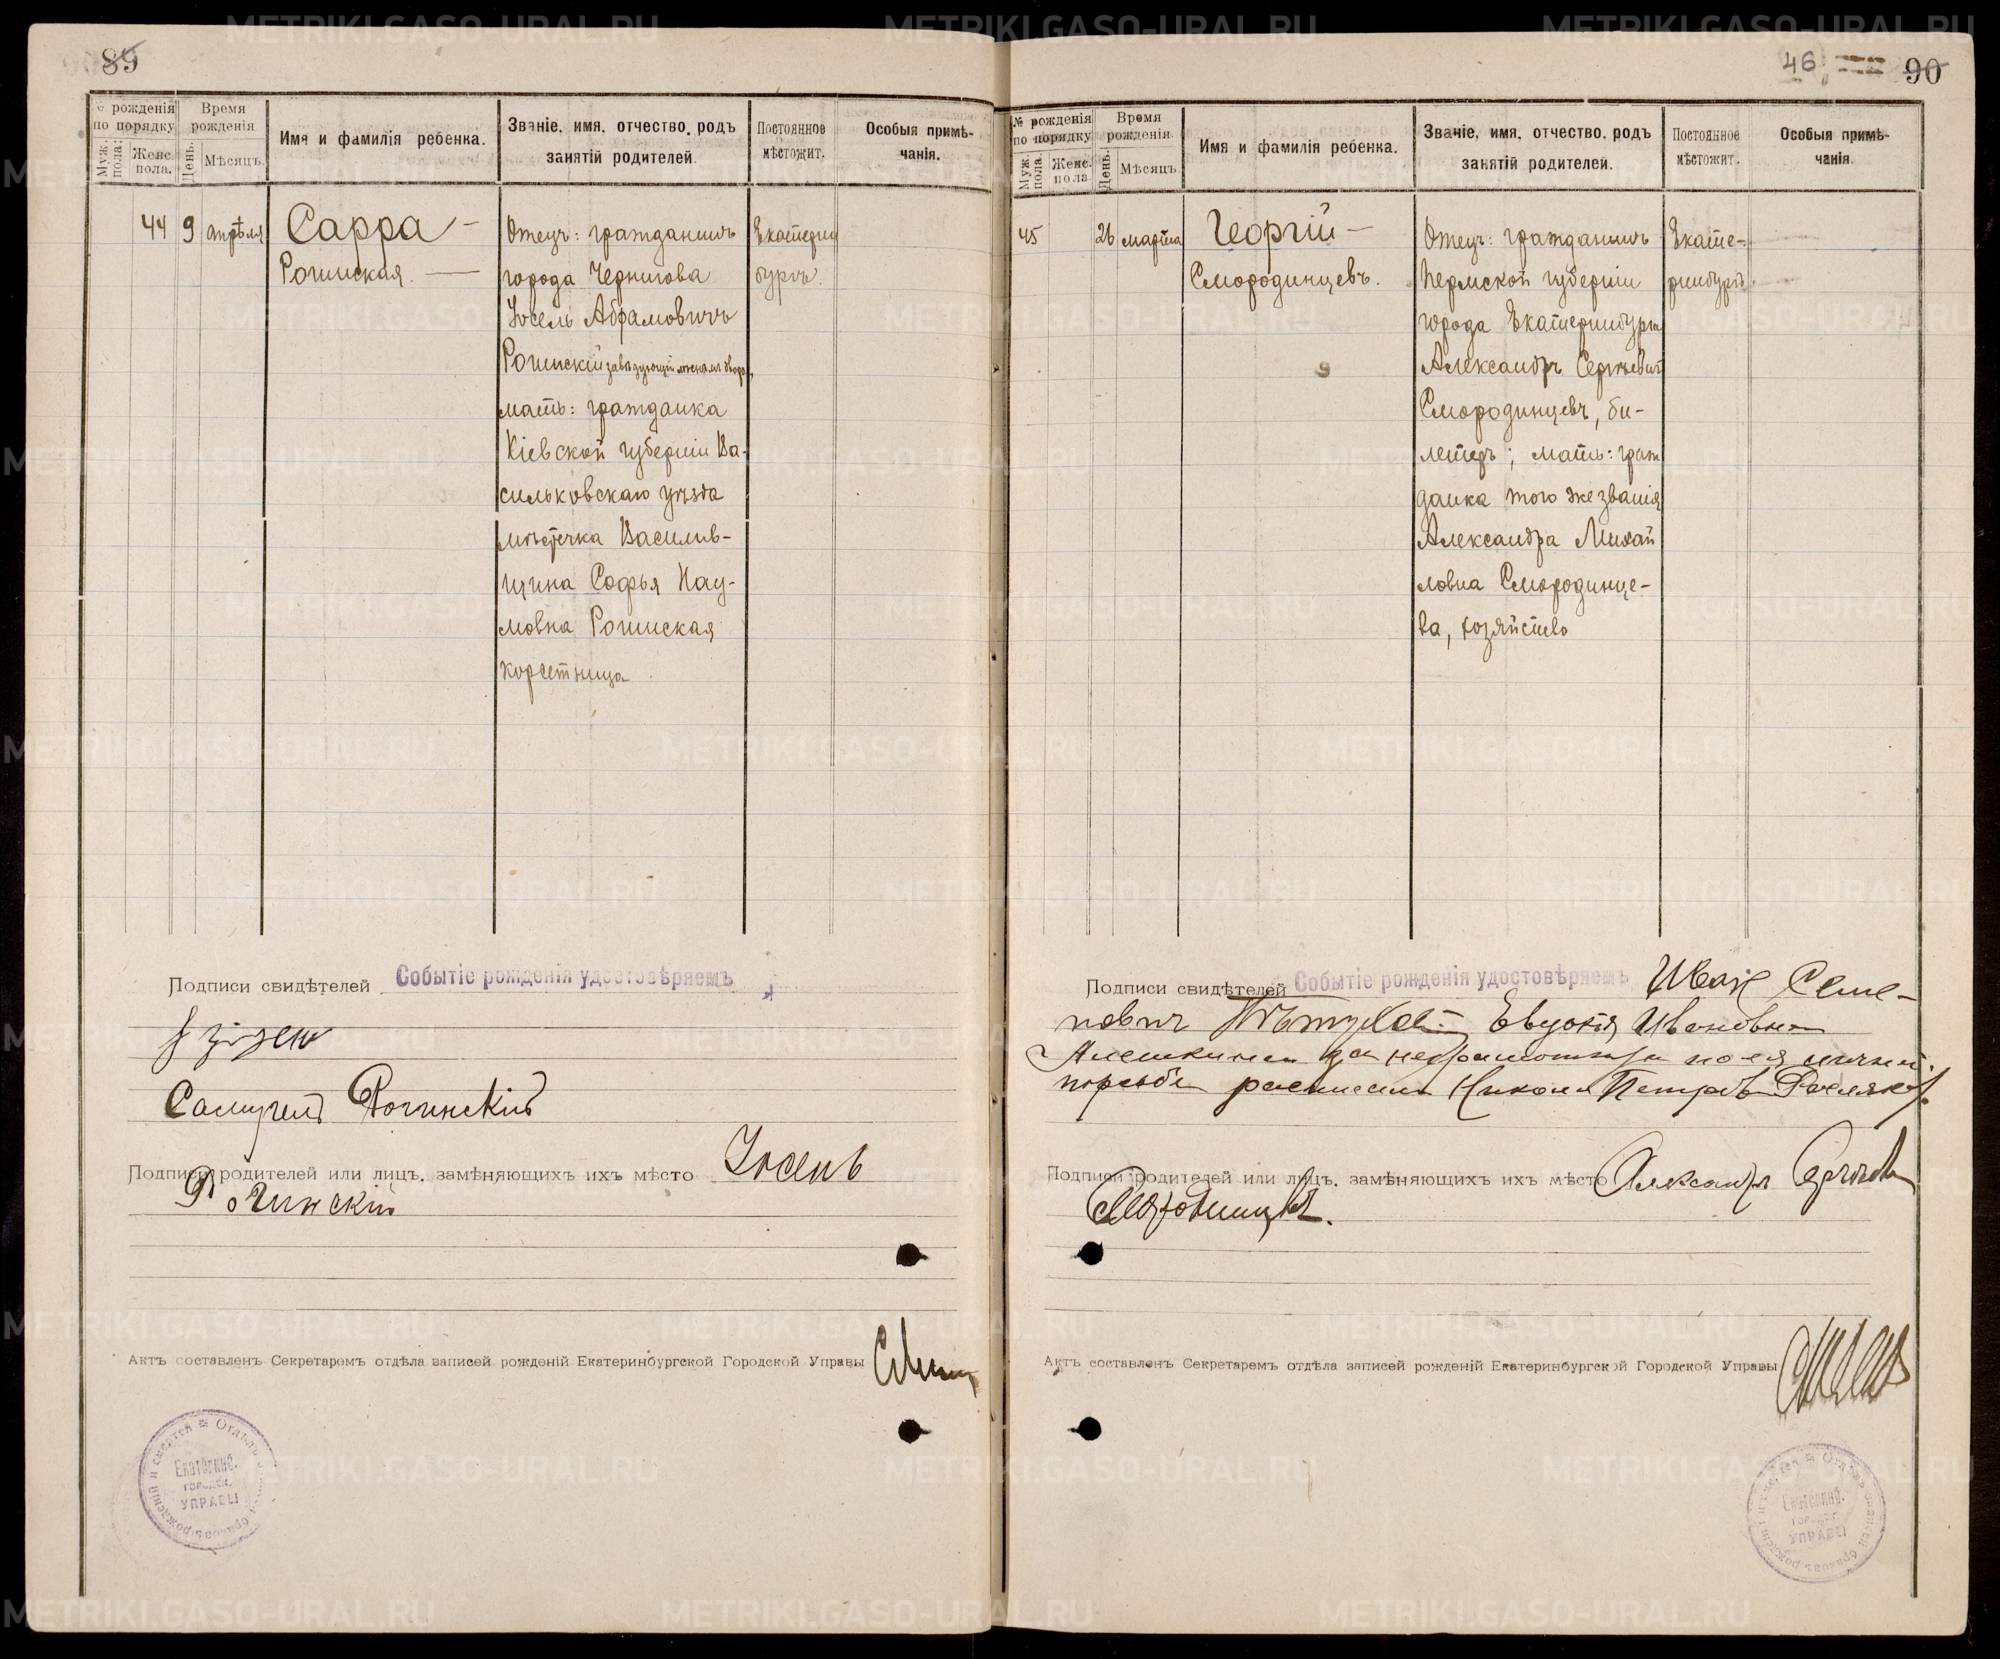 89
№ рожденія по порядку
Муж. пола.
Женс. пола.
Время рожденія
День.
Мѣсяцъ.
Имя и фамилія ребенка.
Званіе, имя, отчество, родъ
занятій родителей.
Постоянное
мѣстожит.
Особыя примѣ-
чанія.
44 9 апрѣля
Сарра —
Рогинская. —
Отецъ: гражданинъ
города Чернигова
Іосель Абрамовичъ
Рогинскій завѣдующій
мать: гражданка
Кіевской губерніи Ва-
сильковскаго уѣзда
мѣстечка Василив-
щина Софья Нау-
мовна Рогинская
корсетница
Екатерин
бургъ.
Подписи свидѣтелей Событіе рожденія удостовѣряемъ
Самуилъ Рогинскій
Подписи родителей или лицъ, замѣняющихъ ихъ мѣсто Іосель
Рогинскій
Актъ составленъ Секретаремъ отдѣла записей рожденій Екатеринбургской Городской Управы
Отдѣлъ записей браковъ, рожденій и смертей
Екатеринб.
городск.
УПРАВЫ
46
90
№ рожденія
по порядку
Муж. пола.
Женс. пола
Время
рожденія.
День.
Мѣсяцъ.
Имя и фамилія ребенка.
Званіе, имя, отчество, родъ
занятій родителей.
Постоянное
мѣстожит.
Особыя примѣ-
чанія.
45 26 марта
Георгій —
Смородинцевъ.
Отецъ: гражданинъ
Пермской губерніи
города Екатеринбурга
Александръ Сергѣевич
Смородинцевъ, би-
летеръ; мать: граж
данка того же званія
Александра Михай
ловна Смородинце-
ва, хозяйство
Екате-
ринбургъ.
Подписи свидѣтелей Событіе рожденія удостовѣряемъ Иван Семе-
нович Пѣтухов Евдокія Ивановна
Алешкина за неграмотную по ея личной
просьбе расписался Николай Петров Росляков.
Подписи родителей или лицъ, замѣняющихъ ихъ мѣсто Александръ Сергѣевъ
Смородинцевъ.
Актъ составленъ Секретаремъ отдѣла записей рожденій Екатеринбургской Городской Управы
Отдѣлъ записей браковъ, рожденій и смертей
Екатеринб.
городск.
УПРАВЫ
METRIKI.GASO-URAL.RU